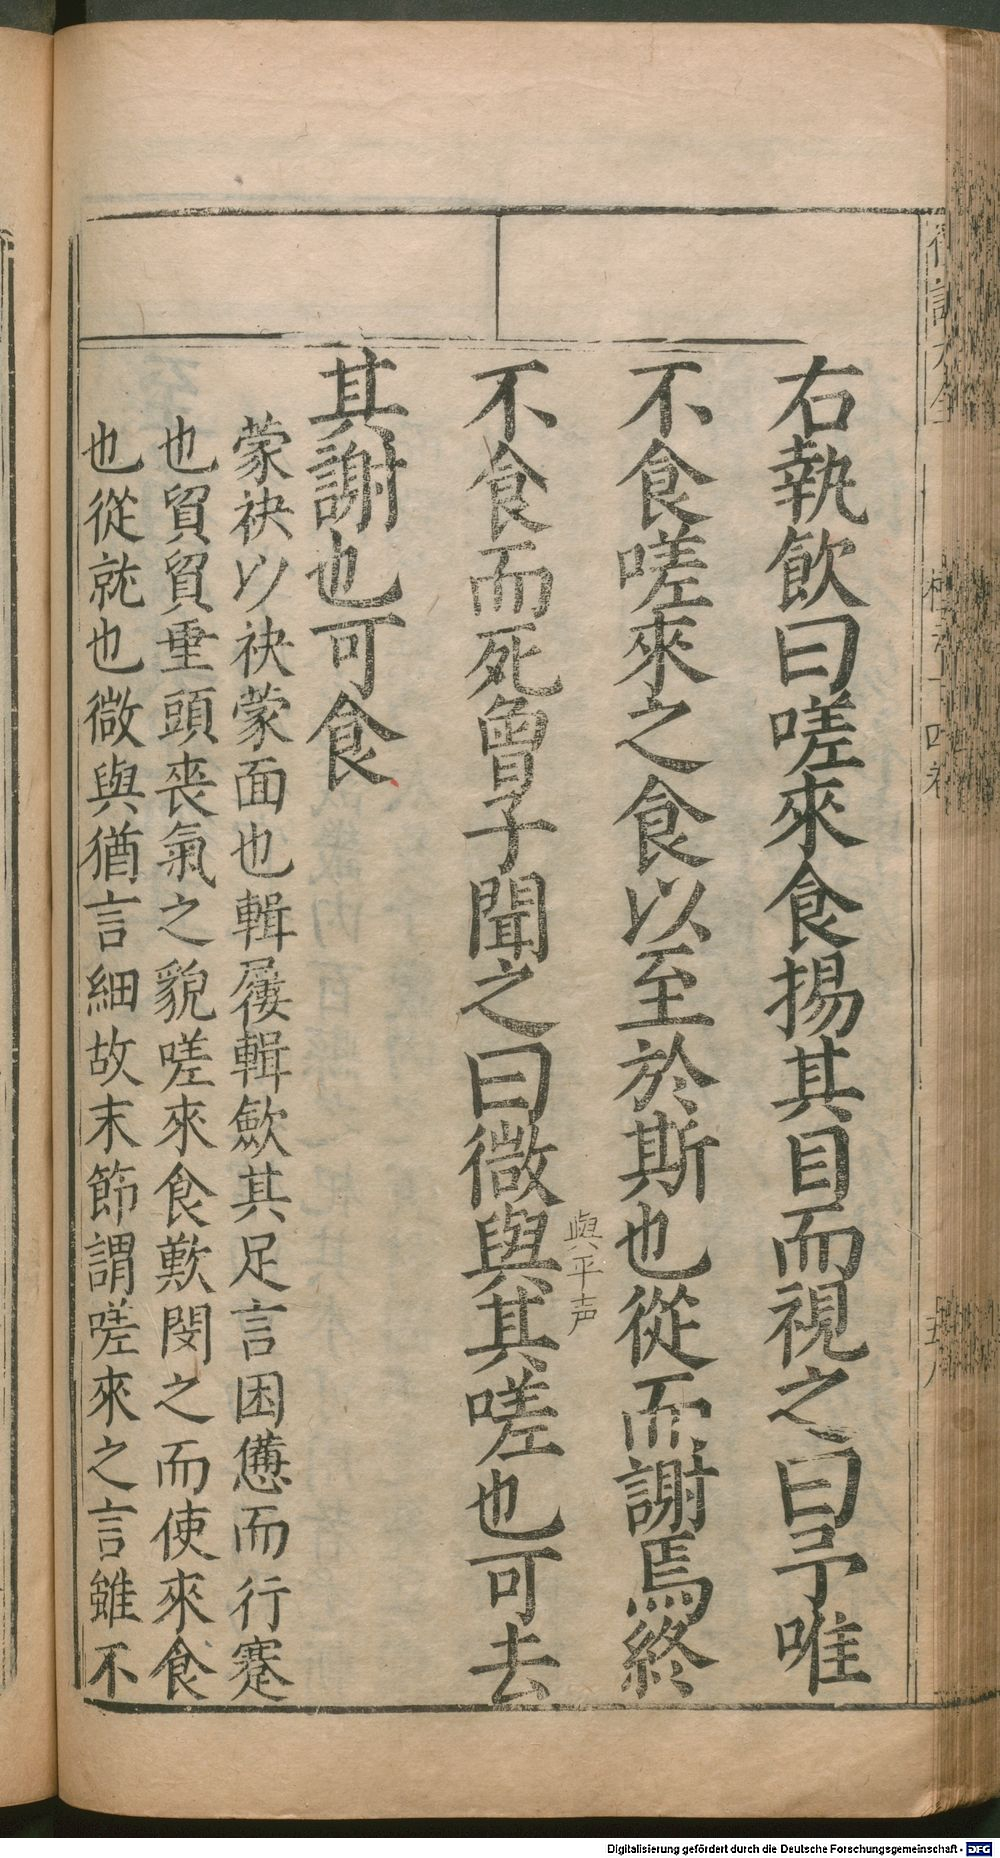 右執飲曰嗟來食揚其目而視之曰予唯
不食嗟來之食以至於斯也從而謝焉終
不食而死曾子聞之曰微與其嗟也可去
與平声
其謝也可食
蒙袂以袂蒙面也輯屨輯斂其足言困憊而行蹇
也貿貿垂頭喪氣之貌嗟來食歎閔之而使來食
也從就也微與猶言細故末節謂嗟來之言雖不
Digitalisierung gefördert durch die Deutsche Forschungsgemeinschaft - DFG